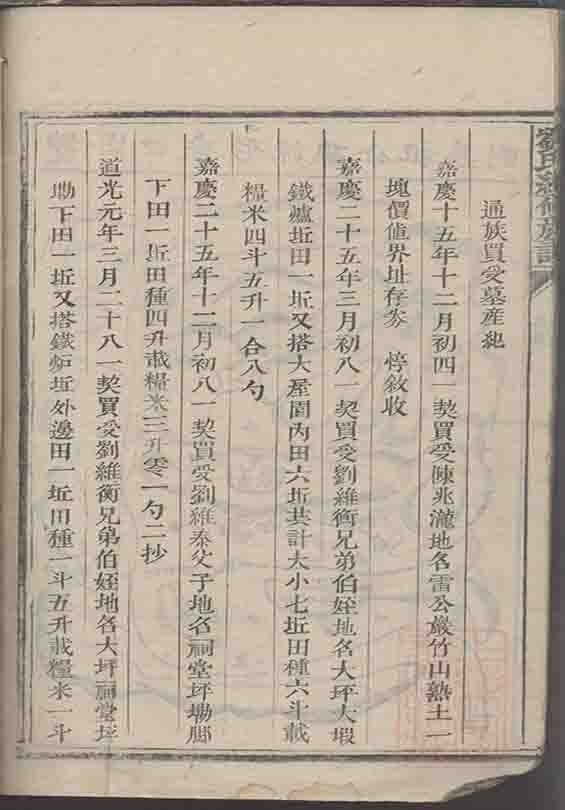 劉氏續修族譜
通族買受墓產紀
嘉慶十五年十二月初四一契買受陳兆瀧地名雷公巖竹山熟土一
塊價值界址存券 惇敘收
嘉慶二十五年三月初八一契買受劉維衡兄弟伯姪地名大坪大塅
鐵爐坵田一坵又搭大屋園內田六坵共計大小七坵田種六斗載
糧米四斗五升一合八勺
嘉慶二十五年十二月初八一契買受劉維泰父子地名祠堂坪墈脚
下田一坵田種四升載糧米三升零一勺二抄
道光元年三月二十八一契買受劉維衡兄弟伯姪地名大坪祠堂坪
墈下田一坵又搭鐵炉坵外邊田一坵田種一斗五升載糧米一斗